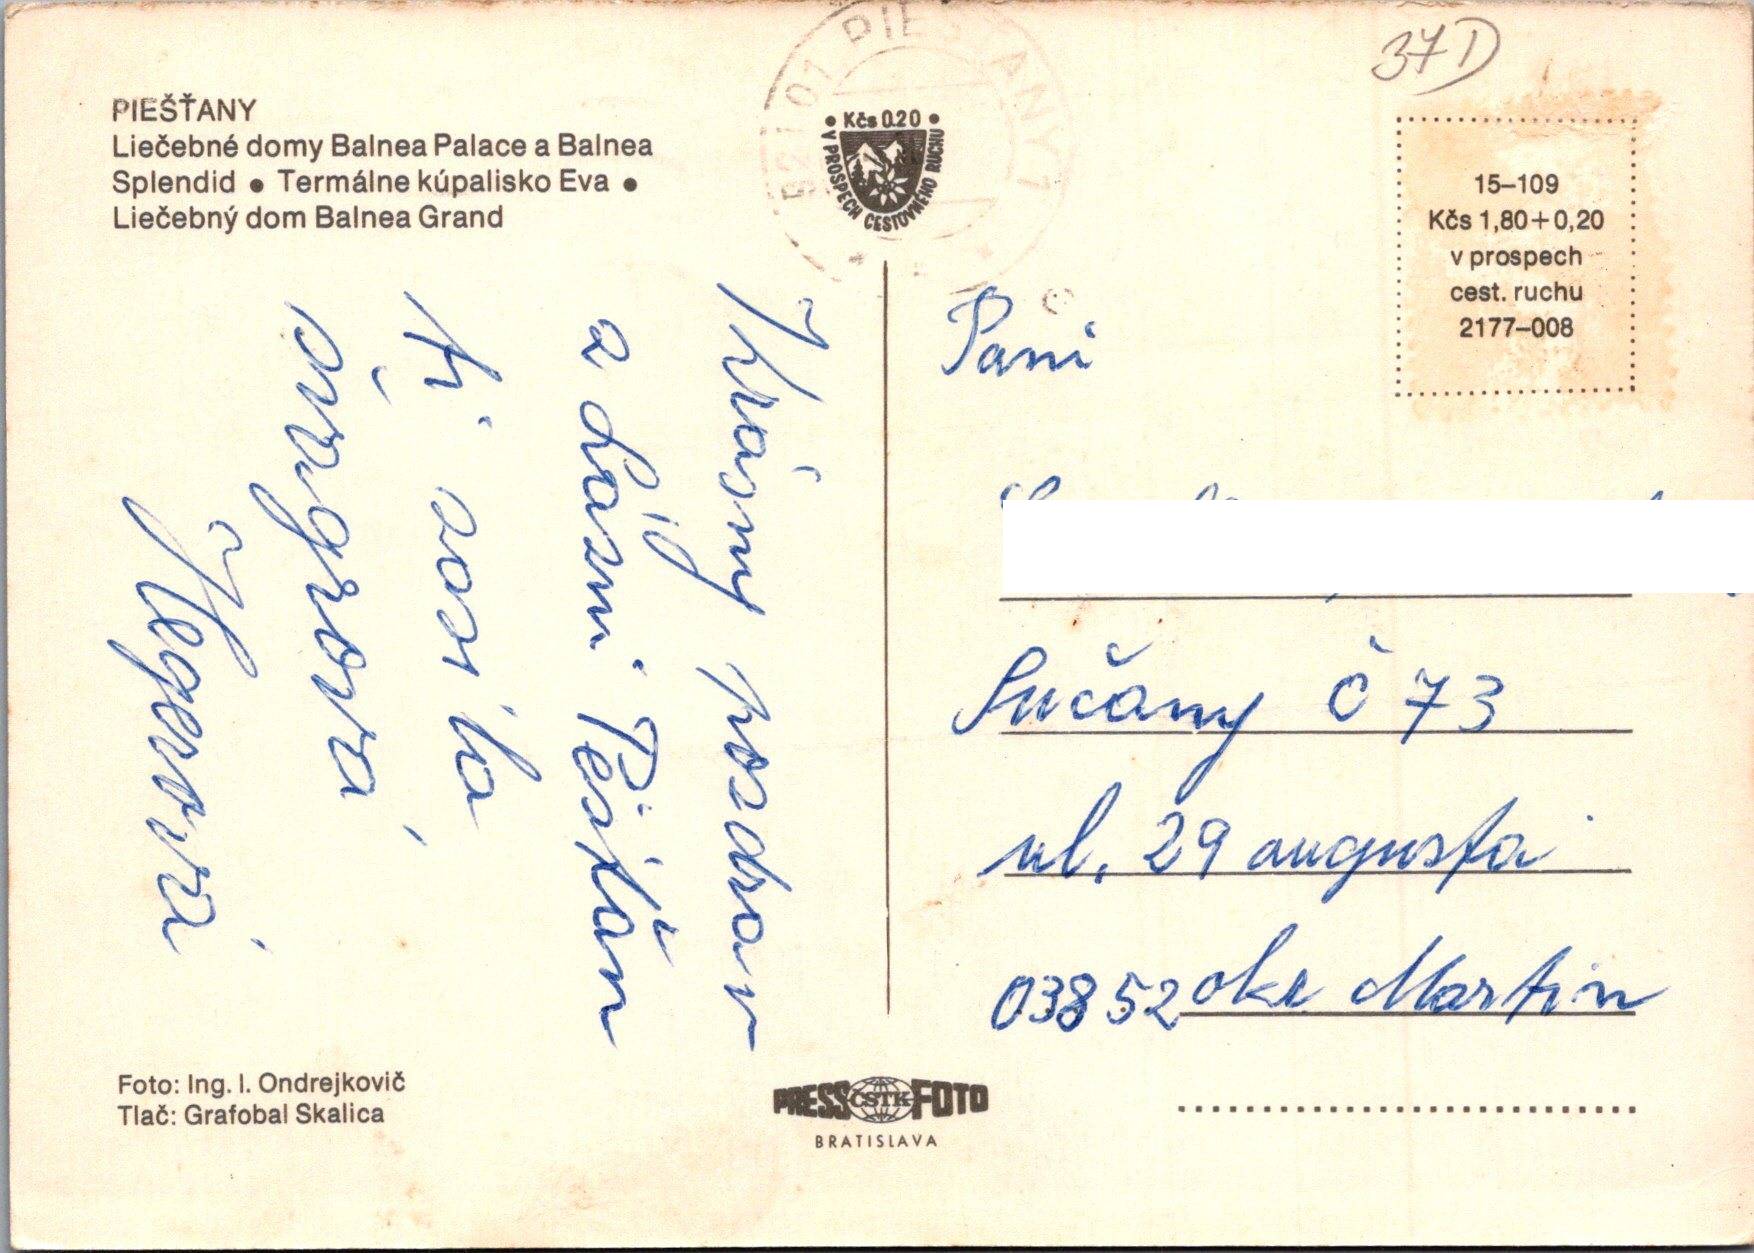 PIEŠŤANY
Liečebné domy Balnea Palace a Balnea
Splendid • Termálne kúpalisko Eva •
Liečebný dom Balnea Grand
921 01 PIEŠŤANY 1
• Kčs 0.20 •
V PROSPECH CESTOVNÉHO RUCHU
37 D
15–109
Kčs 1,80+0,20
v prospech
cest. ruchu
2177–008
Krásny pozdrav
z Lázní Pěšťan
Ti zasila
švagrová
Hegerová
Pani
Sučány č 73
ul. 29 augusta
03852 okr Martin
Foto: Ing. I. Ondrejkovič
Tlač: Grafobal Skalica
PRESS ČSTK FOTO
BRATISLAVA